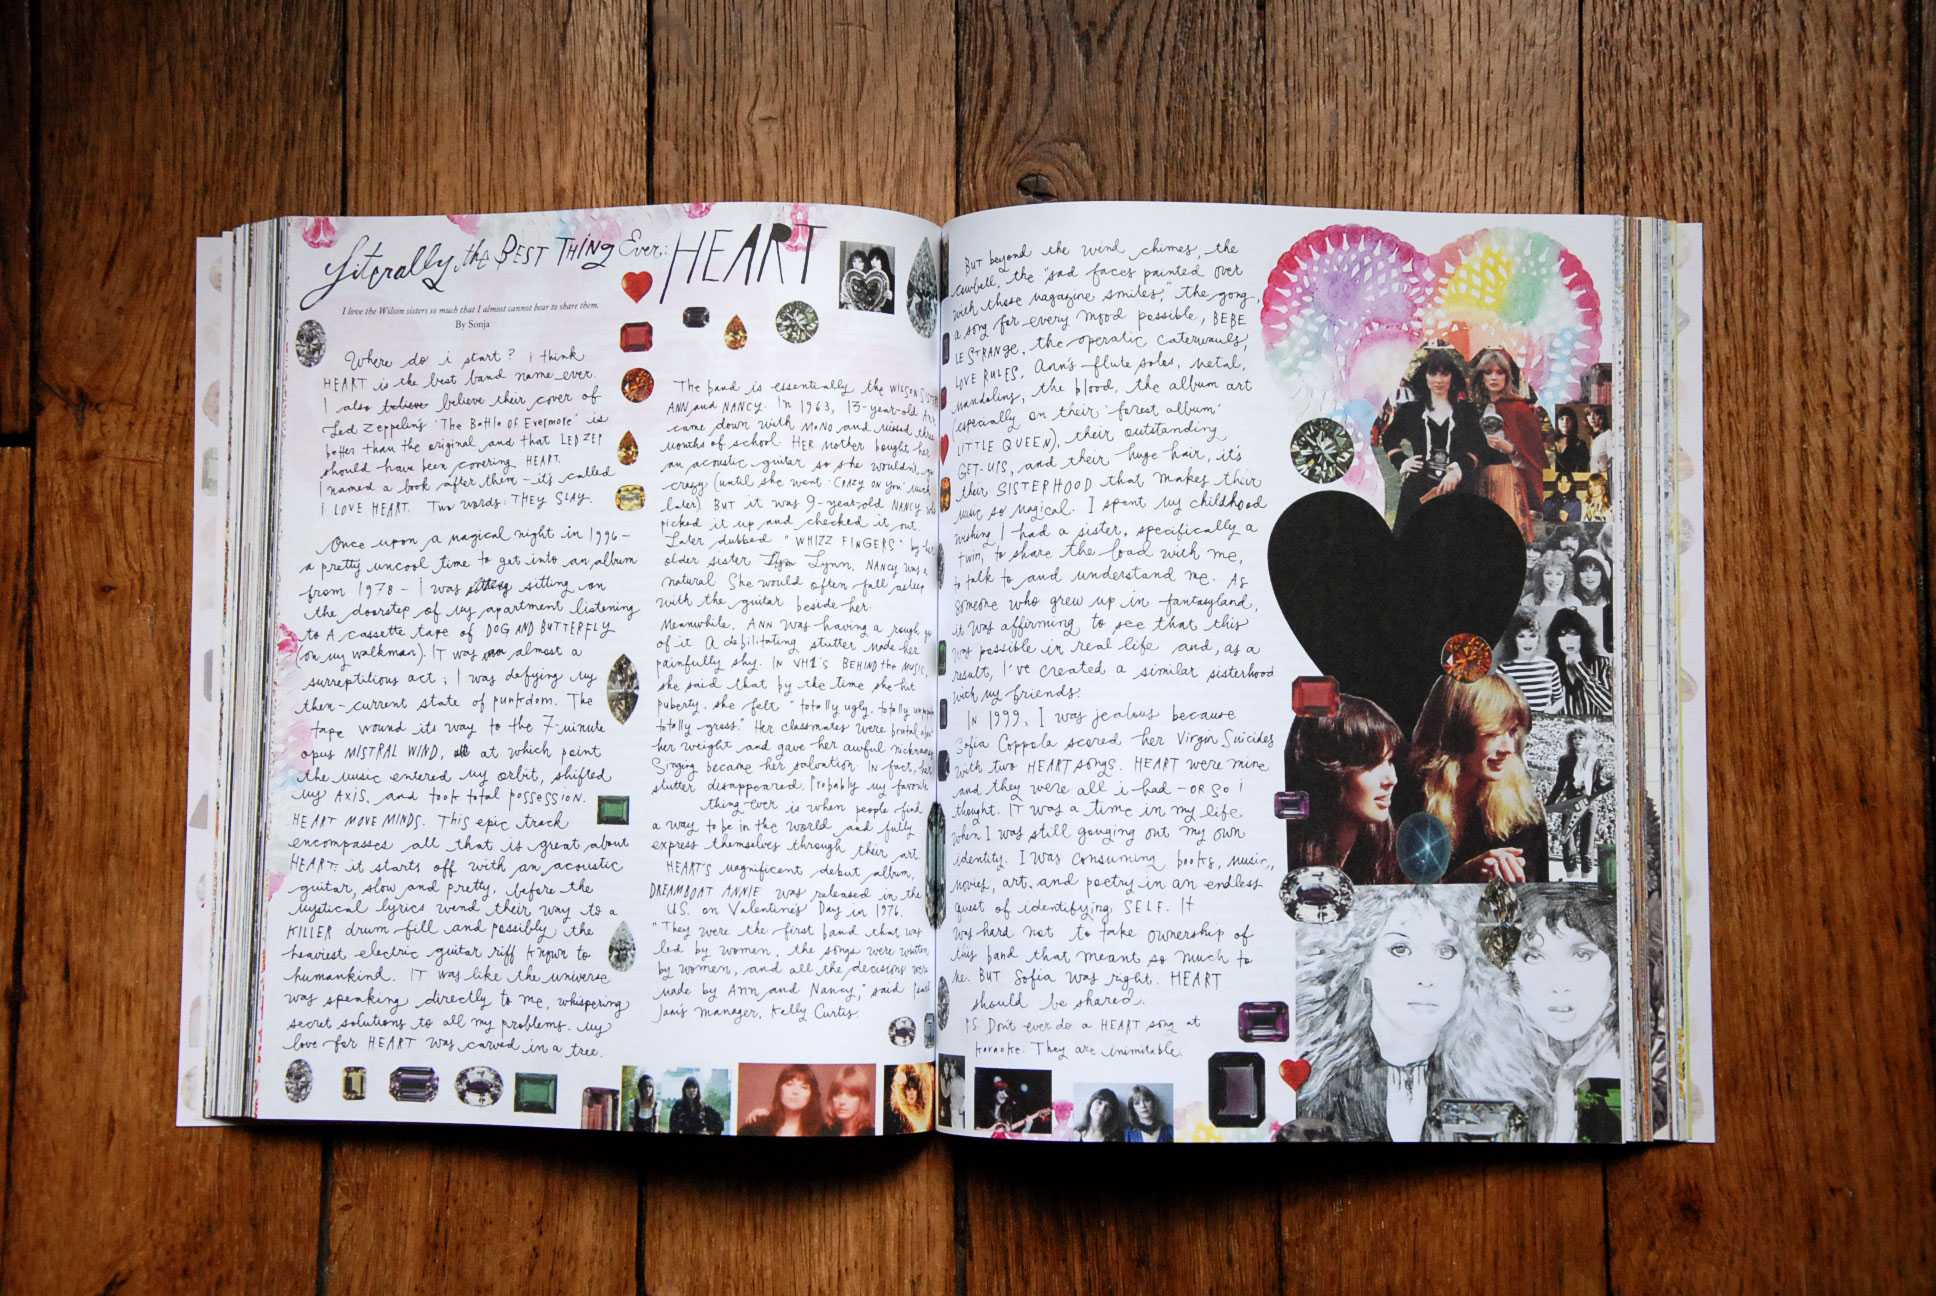 Literally the BEST THING Ever: HEART
I love the Wilson sisters so much that I almost cannot bear to share them.
By Sonja
Where do i start? i think
HEART is the best band name ever.
I also believe believe their cover of
Led Zeppelin's 'The Battle of Evermore' is
better than the original and that LED ZEP
should have been covering HEART.
I named a book after them - it's called
I LOVE HEART. Two words: THEY SLAY.
Once upon a magical night in 1996-
a pretty uncool time to get into an album
from 1978 - I was sitting on
the doorstep of my apartment listening
to A cassette tape of DOG AND BUTTERFLY
(on my walkman). IT was almost a
surreptitious act; I was defying my
then-current state of punkdom. The
tape wound its way to the 7-minute
opus MISTRAL WIND, at which point
the music entered my orbit, shifted
my AXIS, and took total possession.
HEART MOVE MINDS. This epic track
encompasses all that is great about
HEART: it starts off with an acoustic
guitar, slow and pretty, before the
mystical lyrics wend their way to a
KILLER drum fill and possibly the
heaviest electric guitar riff known to
humankind. IT was like the universe
was speaking directly to me, whispering
secret solutions to all my problems. My
love for HEART was carved in a tree.
The band is essentially the WILSON
ANN and NANCY. In 1963, 13-year-old Ann
came down with MONO and missed three
months of school. HER mother bought her
an acoustic guitar so she wouldn't go
crazy (until she went 'CRAZY ON YOU' much
later). BUT it was 9-year-old NANCY who
picked it up and checked it out.
Later dubbed "WHIZZ FINGERS" by her
older sister Lynn, NANCY was a
natural. She would often fall asleep
with the guitar beside her.
Meanwhile, ANN was having a rough go
of it. A debilitating stutter made her
painfully shy. IN VH1'S BEHIND the MUSIC,
she said that by the time she hit
puberty, she felt "totally ugly, totally
totally gross." Her classmates were brutal about
her weight and gave her awful nicknames.
Singing became her salvation. IN fact, her
stutter disappeared. Probably my favorite
thing ever is when people find
a way to be in the world and fully
express themselves through their art.
HEART'S magnificent debut album,
DREAMBOAT ANNIE was released in the
U.S. on Valentine's Day in 1976.
"They were the first band that was
led by women, the songs were written
by women, and all the decisions were
made by Ann and Nancy," said
Janis manager, Kelly Curtis.
BUT beyond the wind chimes, the
cowbell, the "sad faces painted over
with those magazine smiles," the gong,
a song for every mood possible, BEBE
LE STRANGE, the operatic caterwauls,
LOVE RULES, Ann's flute solos, metal,
mandolins, the blood, the album art
(especially on their 'forest album'
LITTLE QUEEN), their outstanding
GET-UPS, and their huge hair, it's
their SISTERHOOD that makes their
music so magical. I spent my childhood
wishing I had a sister, specifically a
twin, to share the load with me,
to talk to and understand me. As
someone who grew up in fantasyland,
it was affirming to see that this
was possible in real life and, as a
result, I've created a similar sisterhood
with my friends.
IN 1999, I was jealous because
Sofia Coppola scored her Virgin Suicides
with two HEART songs. HEART were mine
and they were all i had - OR SO I
thought. IT was a time in my life
when I was still gouging out my own
identity. I was consuming books, music,
movies, art, and poetry in an endless
quest of identifying SELF. It
was hard not to take ownership of
this band that meant so much to
me. BUT Sofia was right. HEART
should be shared.
PS Don't ever do a HEART song at
karaoke. They are inimitable.